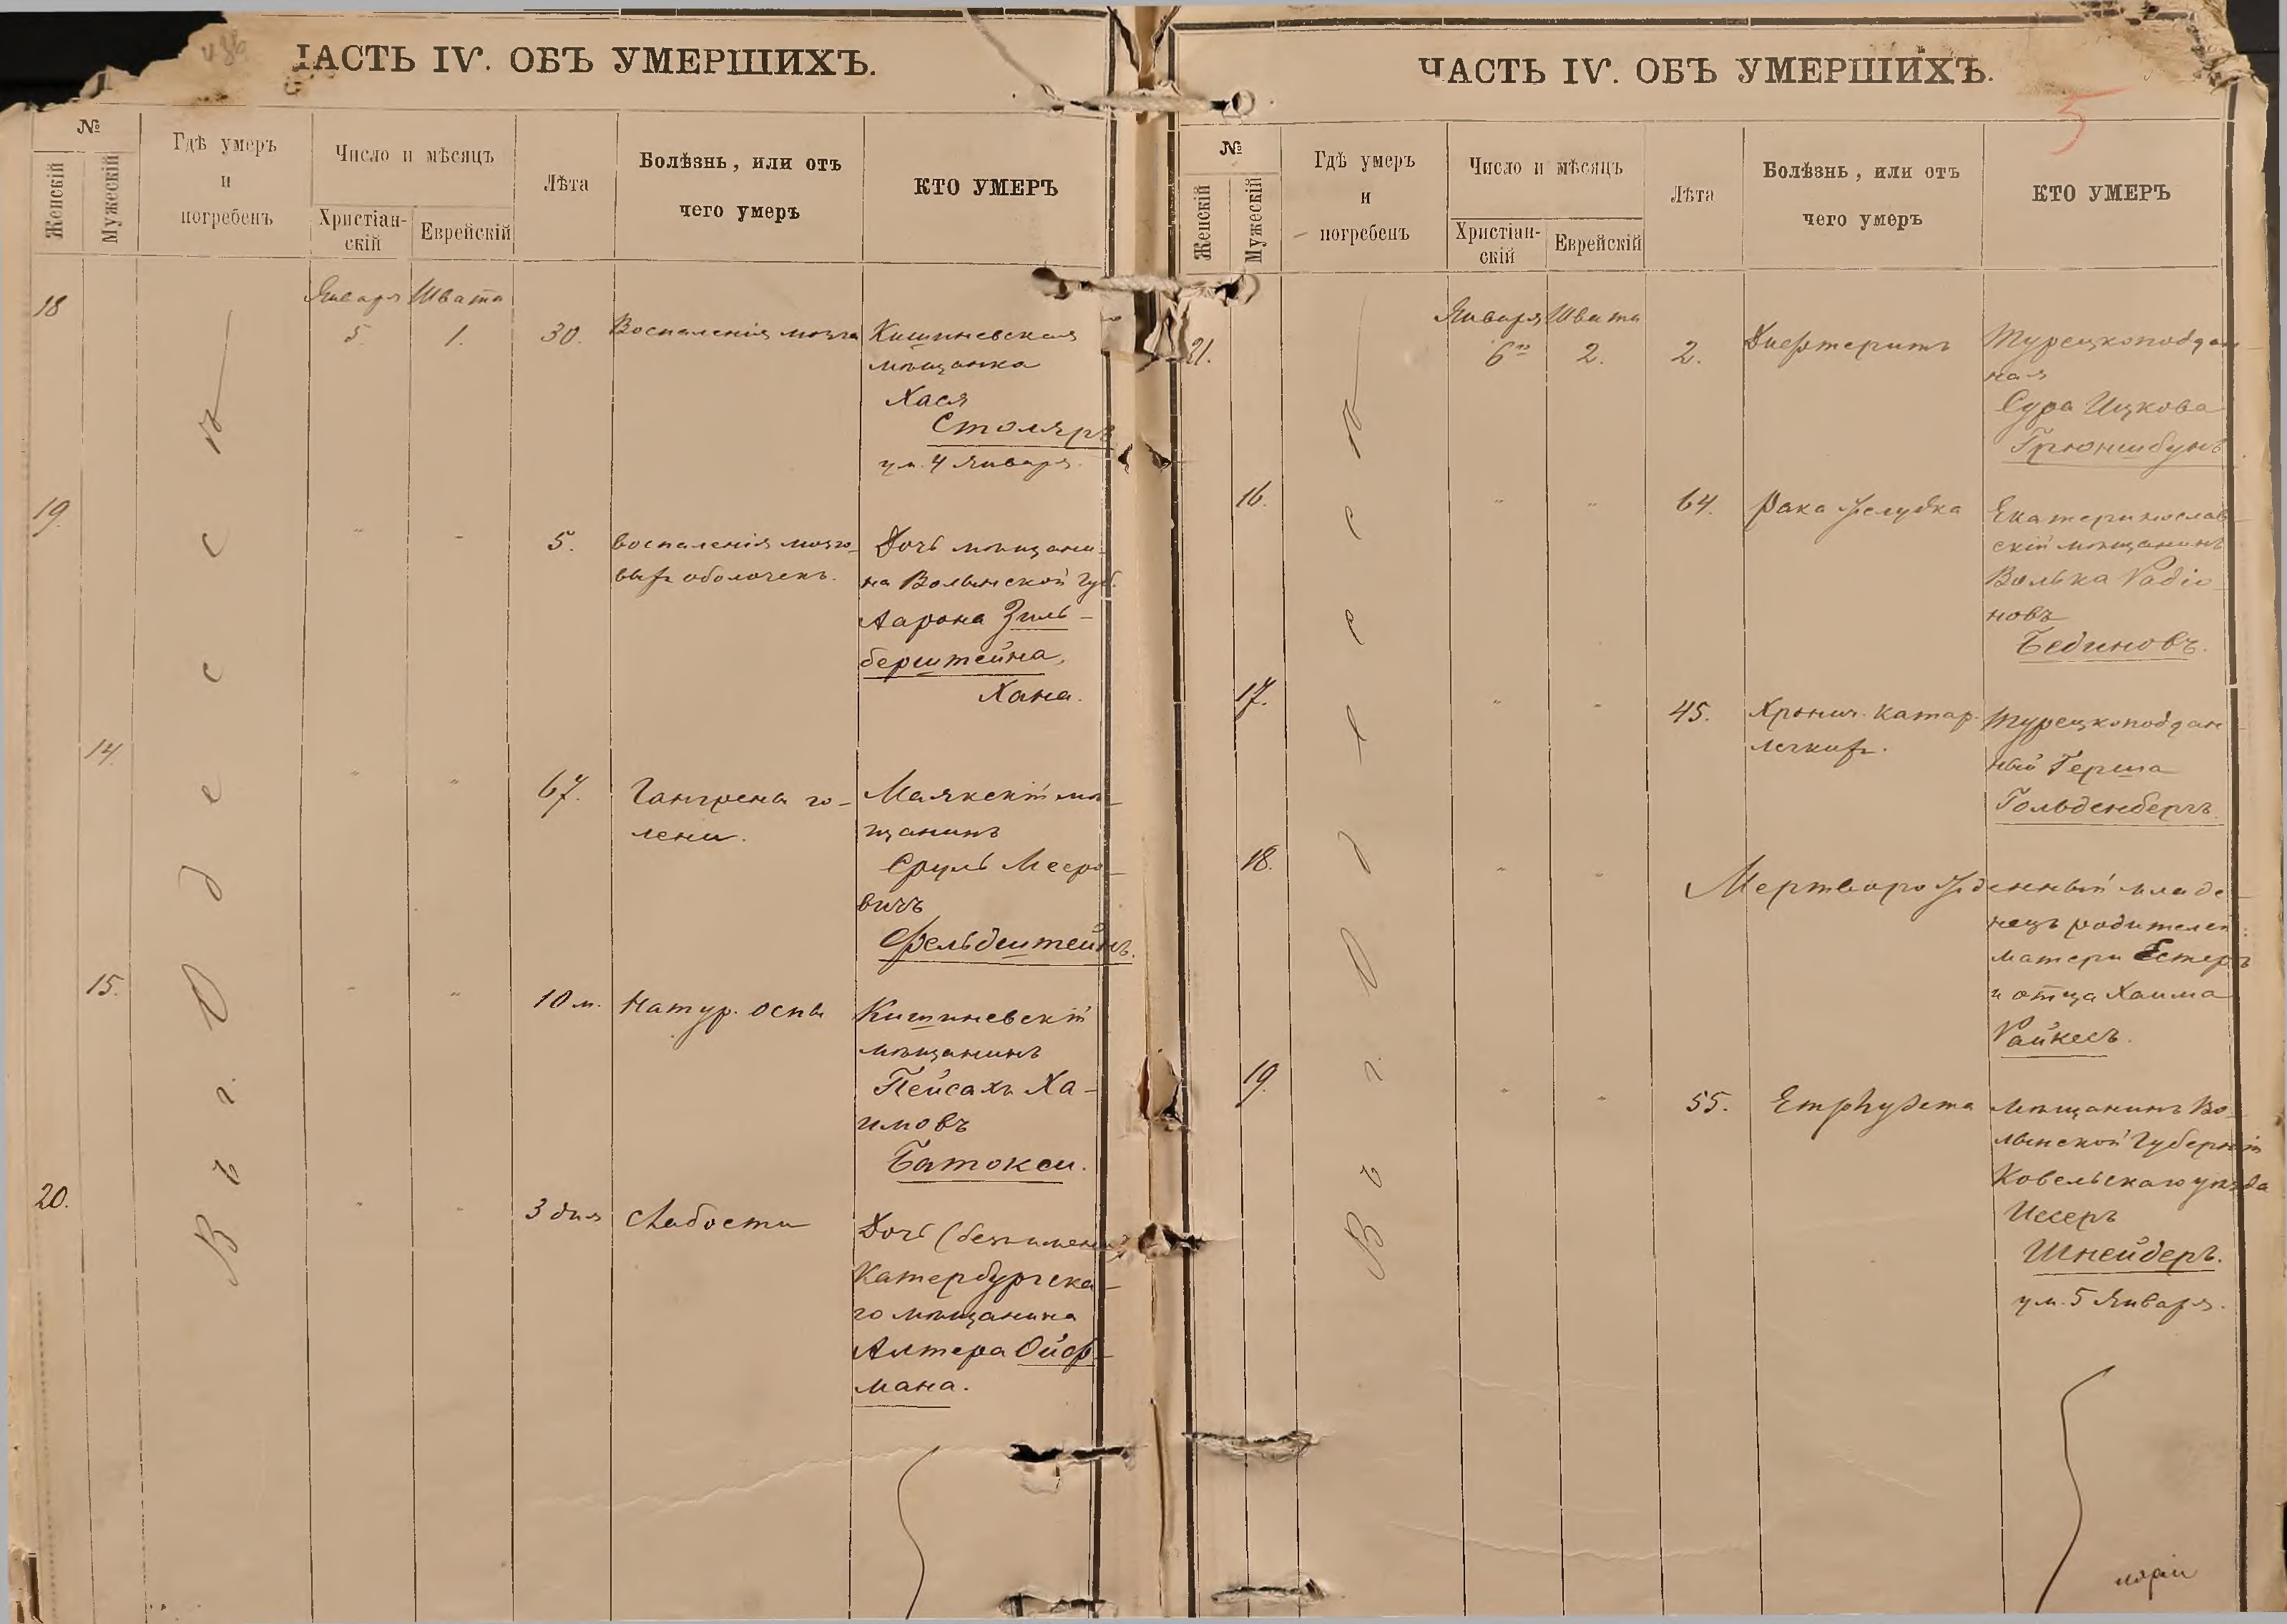 ЧАСТЬ IV. ОБЪ УМЕРШИХЪ.
№
Женскій
Мужескій
Гдѣ умеръ
и
погребенъ
Число и мѣсяцъ
Христіан-
скій
Еврейскій
Лѣта
Болѣзнь, или отъ
чего умеръ
КТО УМЕРЪ
Въ г. Одессѣ
18
Января
5
Швата
1.
30.
Воспаленія мозга
Кишиневская
мѣщанка
Хася
Столяръ
ум. 4 Января.
19.
" "
5.
Воспаленія мозго-
выхъ оболочекъ.
Дочь мѣщани-
на Волынской губ.
Аарона Зиль-
берштейна,
Хана.
14.
" "
67.
Гангрены го-
лени.
Маякскій мѣ-
щанинъ
Сруль Мееро-
вичъ
Фельдштейнъ.
15.
" "
10 м.
Натур. оспы
Кишиневскій
мѣщанинъ
Пейсахъ Ха-
имовъ
Батокси.
20.
" "
3 дня
Слабости
Дочь (безъ имени)
Катербургска-
го мѣщанина
Алтера Ойф-
мана.
ЧАСТЬ IV. ОБЪ УМЕРШИХЪ.
5
№
Женскій
Мужескій
Гдѣ умеръ
и
погребенъ
Число и мѣсяцъ
Христіан-
скій
Еврейскій
Лѣта
Болѣзнь, или отъ
чего умеръ
КТО УМЕРЪ
Въ г. Одессѣ
21.
Января
6го
Швата
2.
2.
Дифтеритъ
Турецкоподдан-
ная
Сура Ицкова
Грюншбунъ
16.
" "
64.
Рака желудка
Екатеринослав-
скій мѣщанинъ
Волька Радіо-
новъ
Бединовъ.
17.
" "
45.
Хронич. катар.
легкихъ.
Турецкоподдан-
ный Герша
Гольденбергъ.
18.
" "
Мертворожденный младе-
нецъ родителей:
матери Естеръ
и отца Хаима
Райкесъ.
19.
" "
55.
Emphysema
Мѣщанинъ Во-
лынской Губерніи
Ковельскаго уѣзда
Иссеръ
Шнейдеръ.
ум. 5 Января.